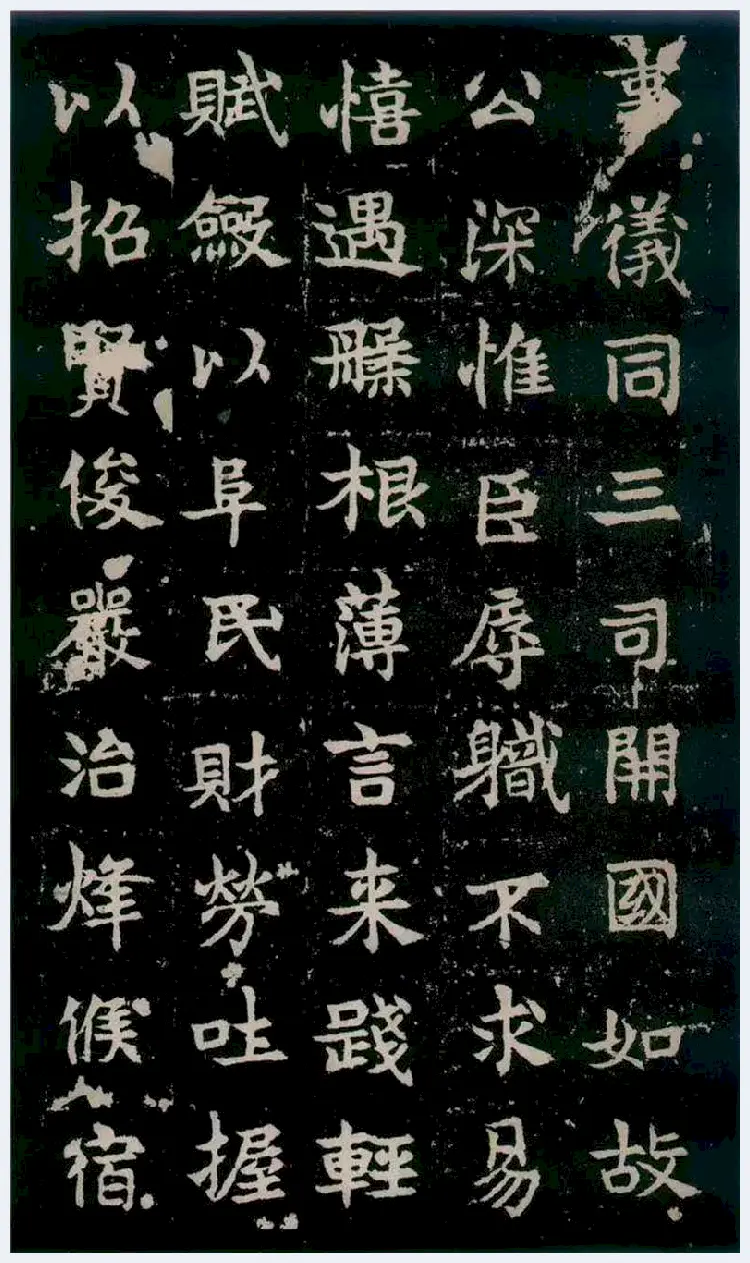 事儀同三司開國如故
公深惟臣辱軄不求易
憘遇槃根薄言来踐輕
賦斂以阜民財勞吐握
以招賢俊嚴治烽候宿